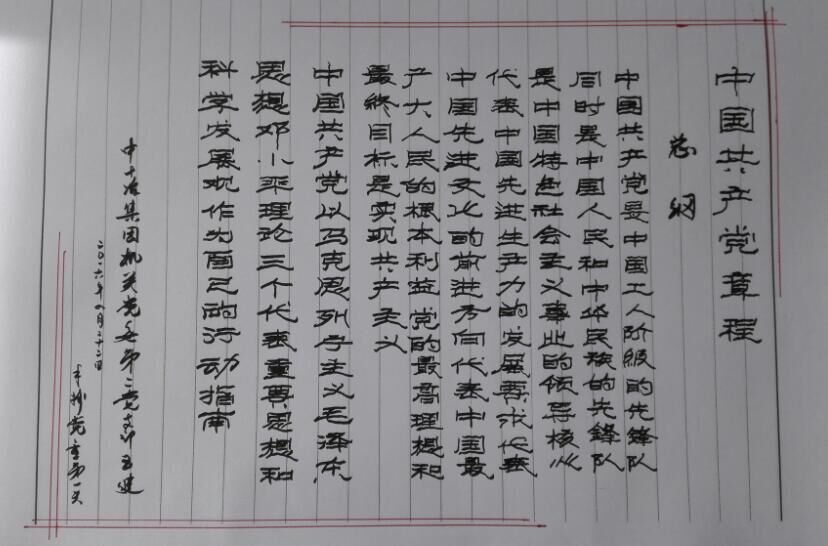 中国共产党章程
总纲
中国共产党是中国工人阶级的先鋒队
同时是中国人民和中华民族的先鋒队
是中国特色社会主义事业的领导核心
代表中国先进生产力的发展要求代表
中国先进文化的前进方向代表中国最
广大人民的根本利益党的最高理想和
最終目标是实现共产主义
中国共产党以马克思列宁主义毛泽东
思想邓小平理论三个代表重要思想和
科学发展观作为自己的行动指南
中十冶集团机关党委第二党支部王建
二〇一六年 月二十二日
手抄党章第一天